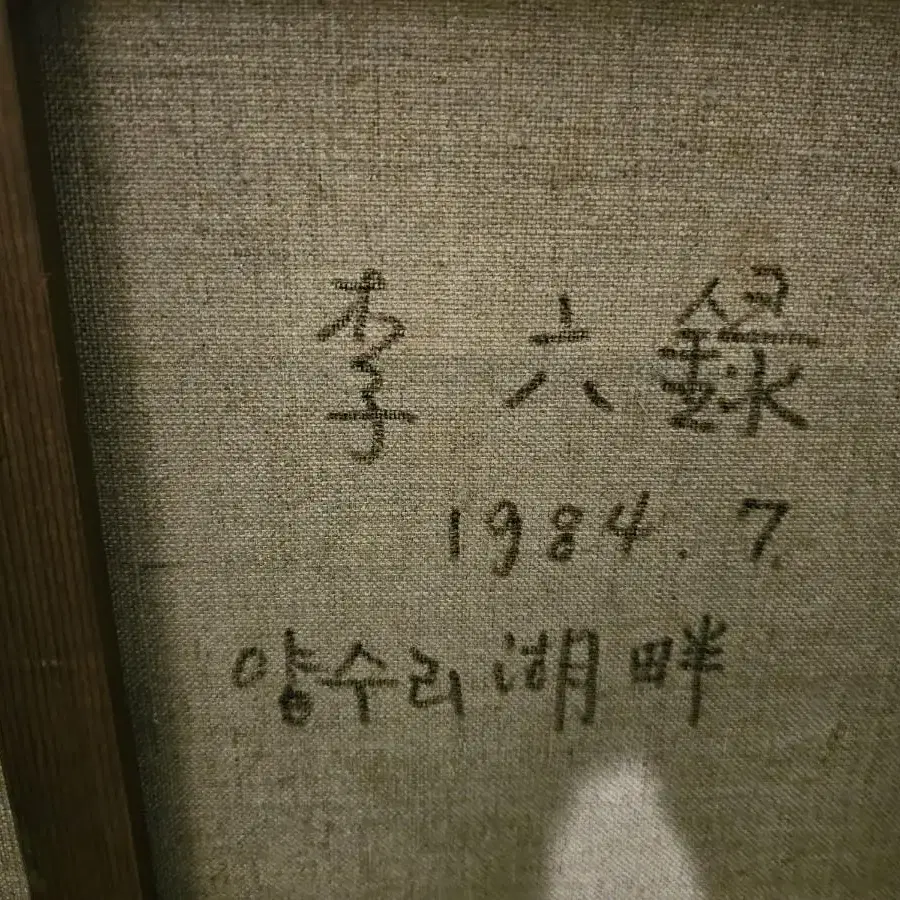 李 六 錄
1984. 7.
양수리 湖畔